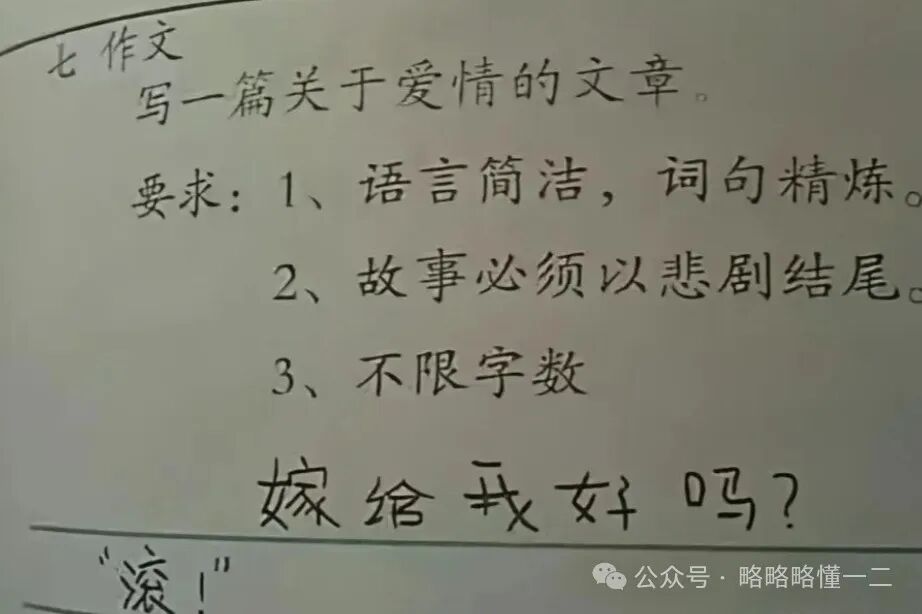 七 作文
写一篇关于爱情的文章。
要求：1、语言简洁，词句精炼。
2、故事必须以悲剧结尾。
3、不限字数
嫁给我好吗？
“滚！”
公众号·略略略懂一二